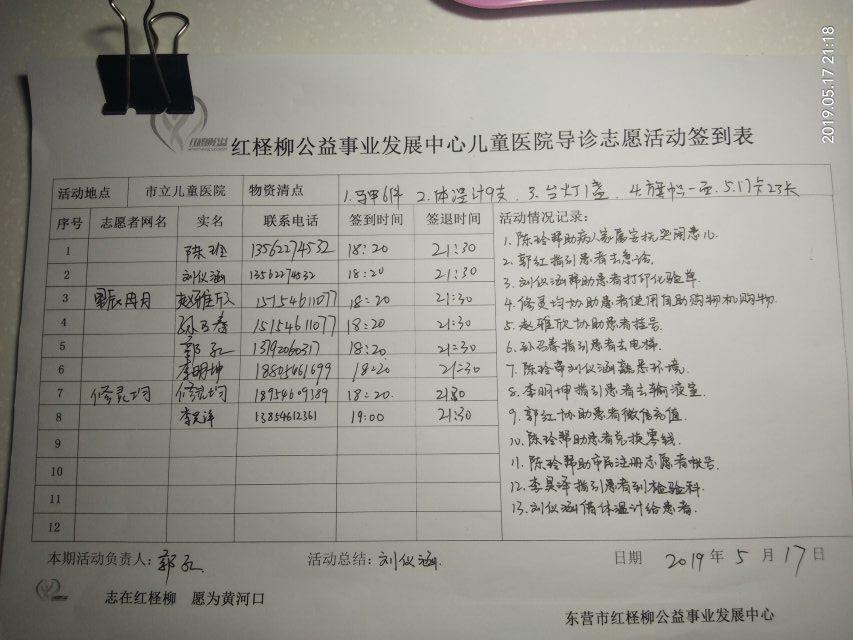 2019.05.17 21:18
红柽柳公益事业发展中心儿童医院导诊志愿活动签到表
活动地点 市立儿童医院 物资清点 1.马甲6件 2.体温计9支 3.台灯1盏 4.旗帜一面 5.门卡23长
序号 志愿者网名 实名 联系电话 签到时间 签退时间 活动情况记录:
1 陈玲 13562274532 18:20 21:30
2 刘仪涵 13562274532 18:20 21:30
3 赵雅欣 15154611077 18:20 21:30
4 孙召春 15154611077 18:20 21:30
5 郭红 13192060317 18:20 21:30
6 李明坤 18805461699 18:20 21:30
7 修灵均 修灵均 18954609389 18:20 2130
8 李昊泽 13854612361 19:00 21:30
9
10
11
12
1.陈玲帮助病人家属安抚哭闹患儿
2.郭红指引患者去急诊
3.刘仪涵帮助患者打印化验单
4.修灵均协助患者使用自助购物机购物.
5.赵雅欣协助患者挂号
6.孙召春指引患者去电梯
7.陈玲带刘仪涵熟悉环境.
8.李明坤指引患者去输液室
9.郭红协助患者微信充值.
10.陈玲帮助患者兑换零钱.
11.陈玲帮助市民注册志愿者帐号
12.李昊泽指引患者到检验科.
13.刘仪涵借体温计给患者.
本期活动负责人: 郭红 活动总结: 刘仪涵. 日期 2019年5月17日
志在红柽柳 愿为黄河口
东营市红柽柳公益事业发展中心